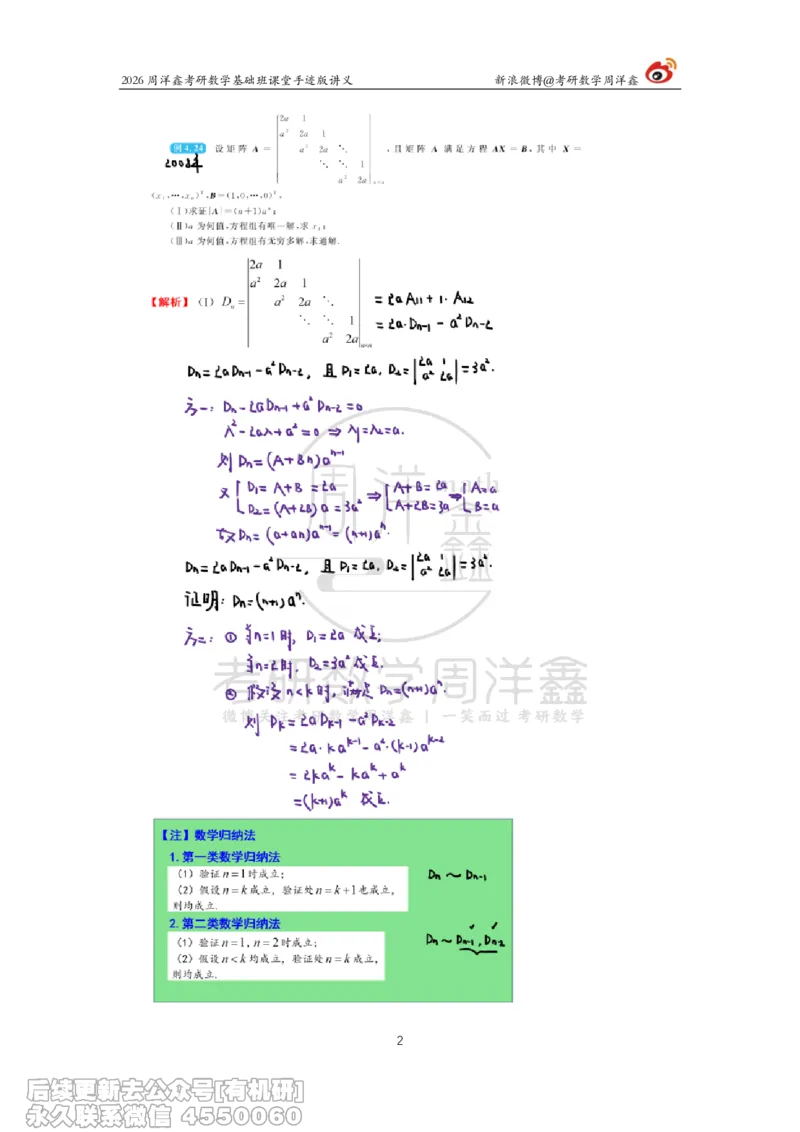 2026周洋鑫考研数学基础班课堂手迹版讲义 新浪微博@考研数学周洋鑫
例4.24 设矩阵 A = |2a 1
a² 2a 1
a² 2a ⋱
⋱ ⋱ 1
a² 2a|n×n ,且矩阵 A 满足方程 AX = B,其中 X =
2008年
(x₁,⋯,xₙ)ᵀ,B=(1,0,⋯,0)ᵀ.
(Ⅰ)求证|A|=(n+1)aⁿ;
(Ⅱ)a 为何值,方程组有唯一解,求 x₁;
(Ⅲ)a 为何值,方程组有无穷多解,求通解.
【解析】(I) Dₙ = |2a 1
a² 2a 1
a² 2a ⋱
⋱ ⋱ 1
a² 2a|n×n
= 2a A₁₁ + 1· A₁₂
= 2a·Dn-1 - a²Dn-2
Dn = 2aDn-1 - a²Dn-2, 且 D₁=2a, D₂= |2a 1 a² 2a| = 3a².
方一: Dn - 2aDn-1 + a²Dn-2 = 0
λ² - 2aλ + a² = 0 ⇒ λ₁=λ₂=a.
则 Dn = (A+Bn)aⁿ
又 { D₁ = A+B = 2a D₂ = (A+2B)a = 3a² ⇒ { A+B = 2a A+2B = 3a ⇒ { A=a B=a
故 Dn = (a+an)aⁿ⁻¹ = (n+1)aⁿ.
Dn = 2aDn-1 - a²Dn-2, 且 D₁=2a, D₂= |2a 1 a² 2a| = 3a².
证明: Dn=(n+1)aⁿ.
方二: ① 当n=1时, D₁=2a 成立;
当n=2时, D₂=3a² 成立.
② 假设 n<k 时, 满足 Dn=(n+1)aⁿ.
则 Dk = 2aDk-1 - a²Dk-2
= 2a·kaᵏ⁻¹ - a²·(k-1)aᵏ⁻²
= 2kaᵏ - kaᵏ + aᵏ
= (k+1)aᵏ 成立.
周洋鑫
math
考研数学周洋鑫
微博关注考研数学周洋鑫 | 一笑而过 考研数学
【注】数学归纳法
1.第一类数学归纳法
(1)验证n=1时成立;
(2)假设n=k成立,验证处n=k+1也成立,
则均成立.
Dn ~ Dn-1
2.第二类数学归纳法
(1)验证n=1,n=2时成立;
(2)假设n<k均成立,验证处n=k成立,
则均成立.
Dn ~ Dn-1, Dn-2
2
后续更新去公众号[有机研]
永久联系微信 4550060